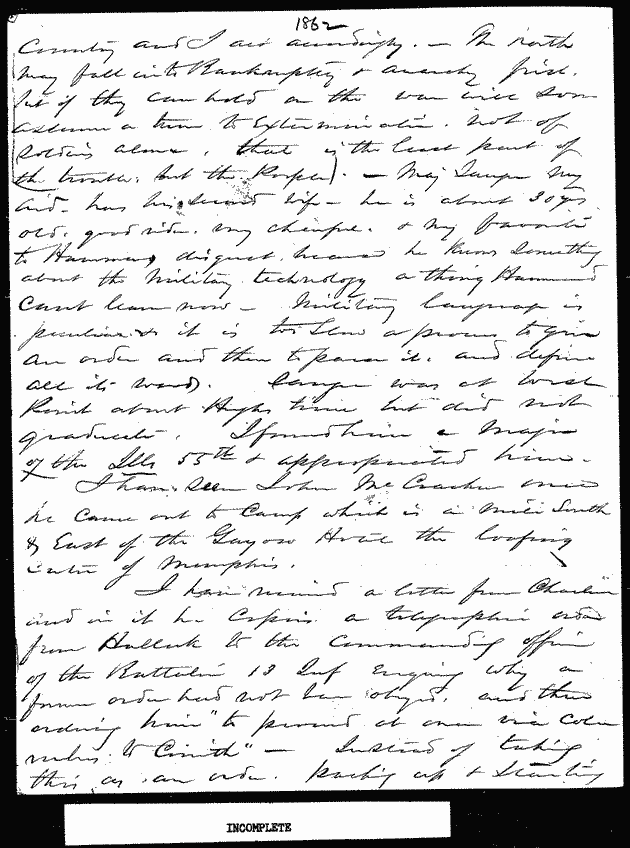 1862
Country and I act accordingly. — The north
may fall into Bankruptcy & anarchy first.
but if they can hold on the war will soon
assume a turn to Extermination. not of
soldiers alone, that is the least part of
the trouble. but the People). — Maj Sanger my
aid. has his second wife — he is about 30 yrs
old. good rider. very cheerful. & my favorite
to Hammonds disgust, because he knows something
about the Military technology a thing Hammond
cant learn now — Military language is
peculiar & it is too slow a process to give
an order and then to parse it. and define
all its words. Sanger was at West
Point about Hughs time but did not
graduate. I found him a Major
of the Ills 55th & appropriated him.
I have seen John McCracken once
he came out to Camp which is a mile South
& East of the Gayoso House the loafing
center of Memphis.
I have received a letter from Charley
and in it he Copies a telegraphic order
from Halleck to the Commanding officer
of the Battalion 13 Inf Enquiring why a
former order had not been obeyed. and then
ordering him "to proceed at once via Colum
mbus to Corinth" — Instead of taking
this as an order. packing up & Starting
INCOMPLETE